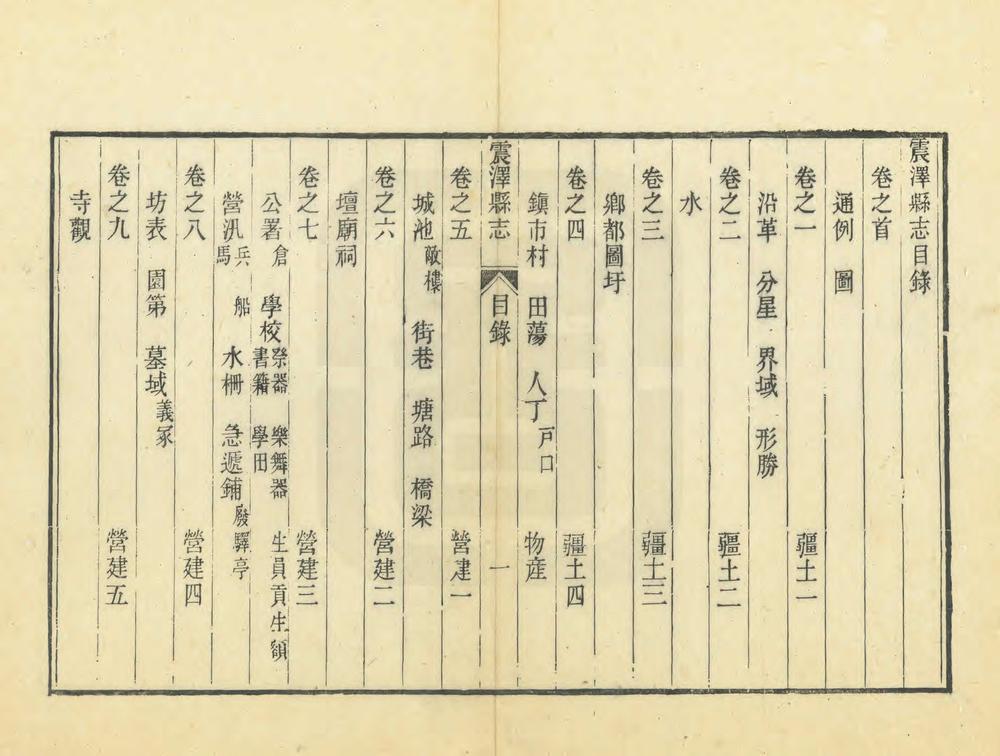 震澤縣志目錄
卷之首
通例 圖
卷之一 疆土一
沿革 分星 界域 形勝
卷之二 疆土二
水
卷之三 疆土三
鄉都圖圩
卷之四 疆土四
鎮市村 田蕩 人丁戸口 物産
震澤縣志 目錄 一
卷之五 營建一
城池敵樓 街巷 塘路 橋梁
卷之六 營建二
壇廟祠
卷之七 營建三
公署倉 學校祭器 樂舞器 書籍 學田 生員貢生額
營汛兵馬 船 水柵 急遞鋪廢驛亭
卷之八 營建四
坊表 園第 墓域義冢
卷之九 營建五
寺觀